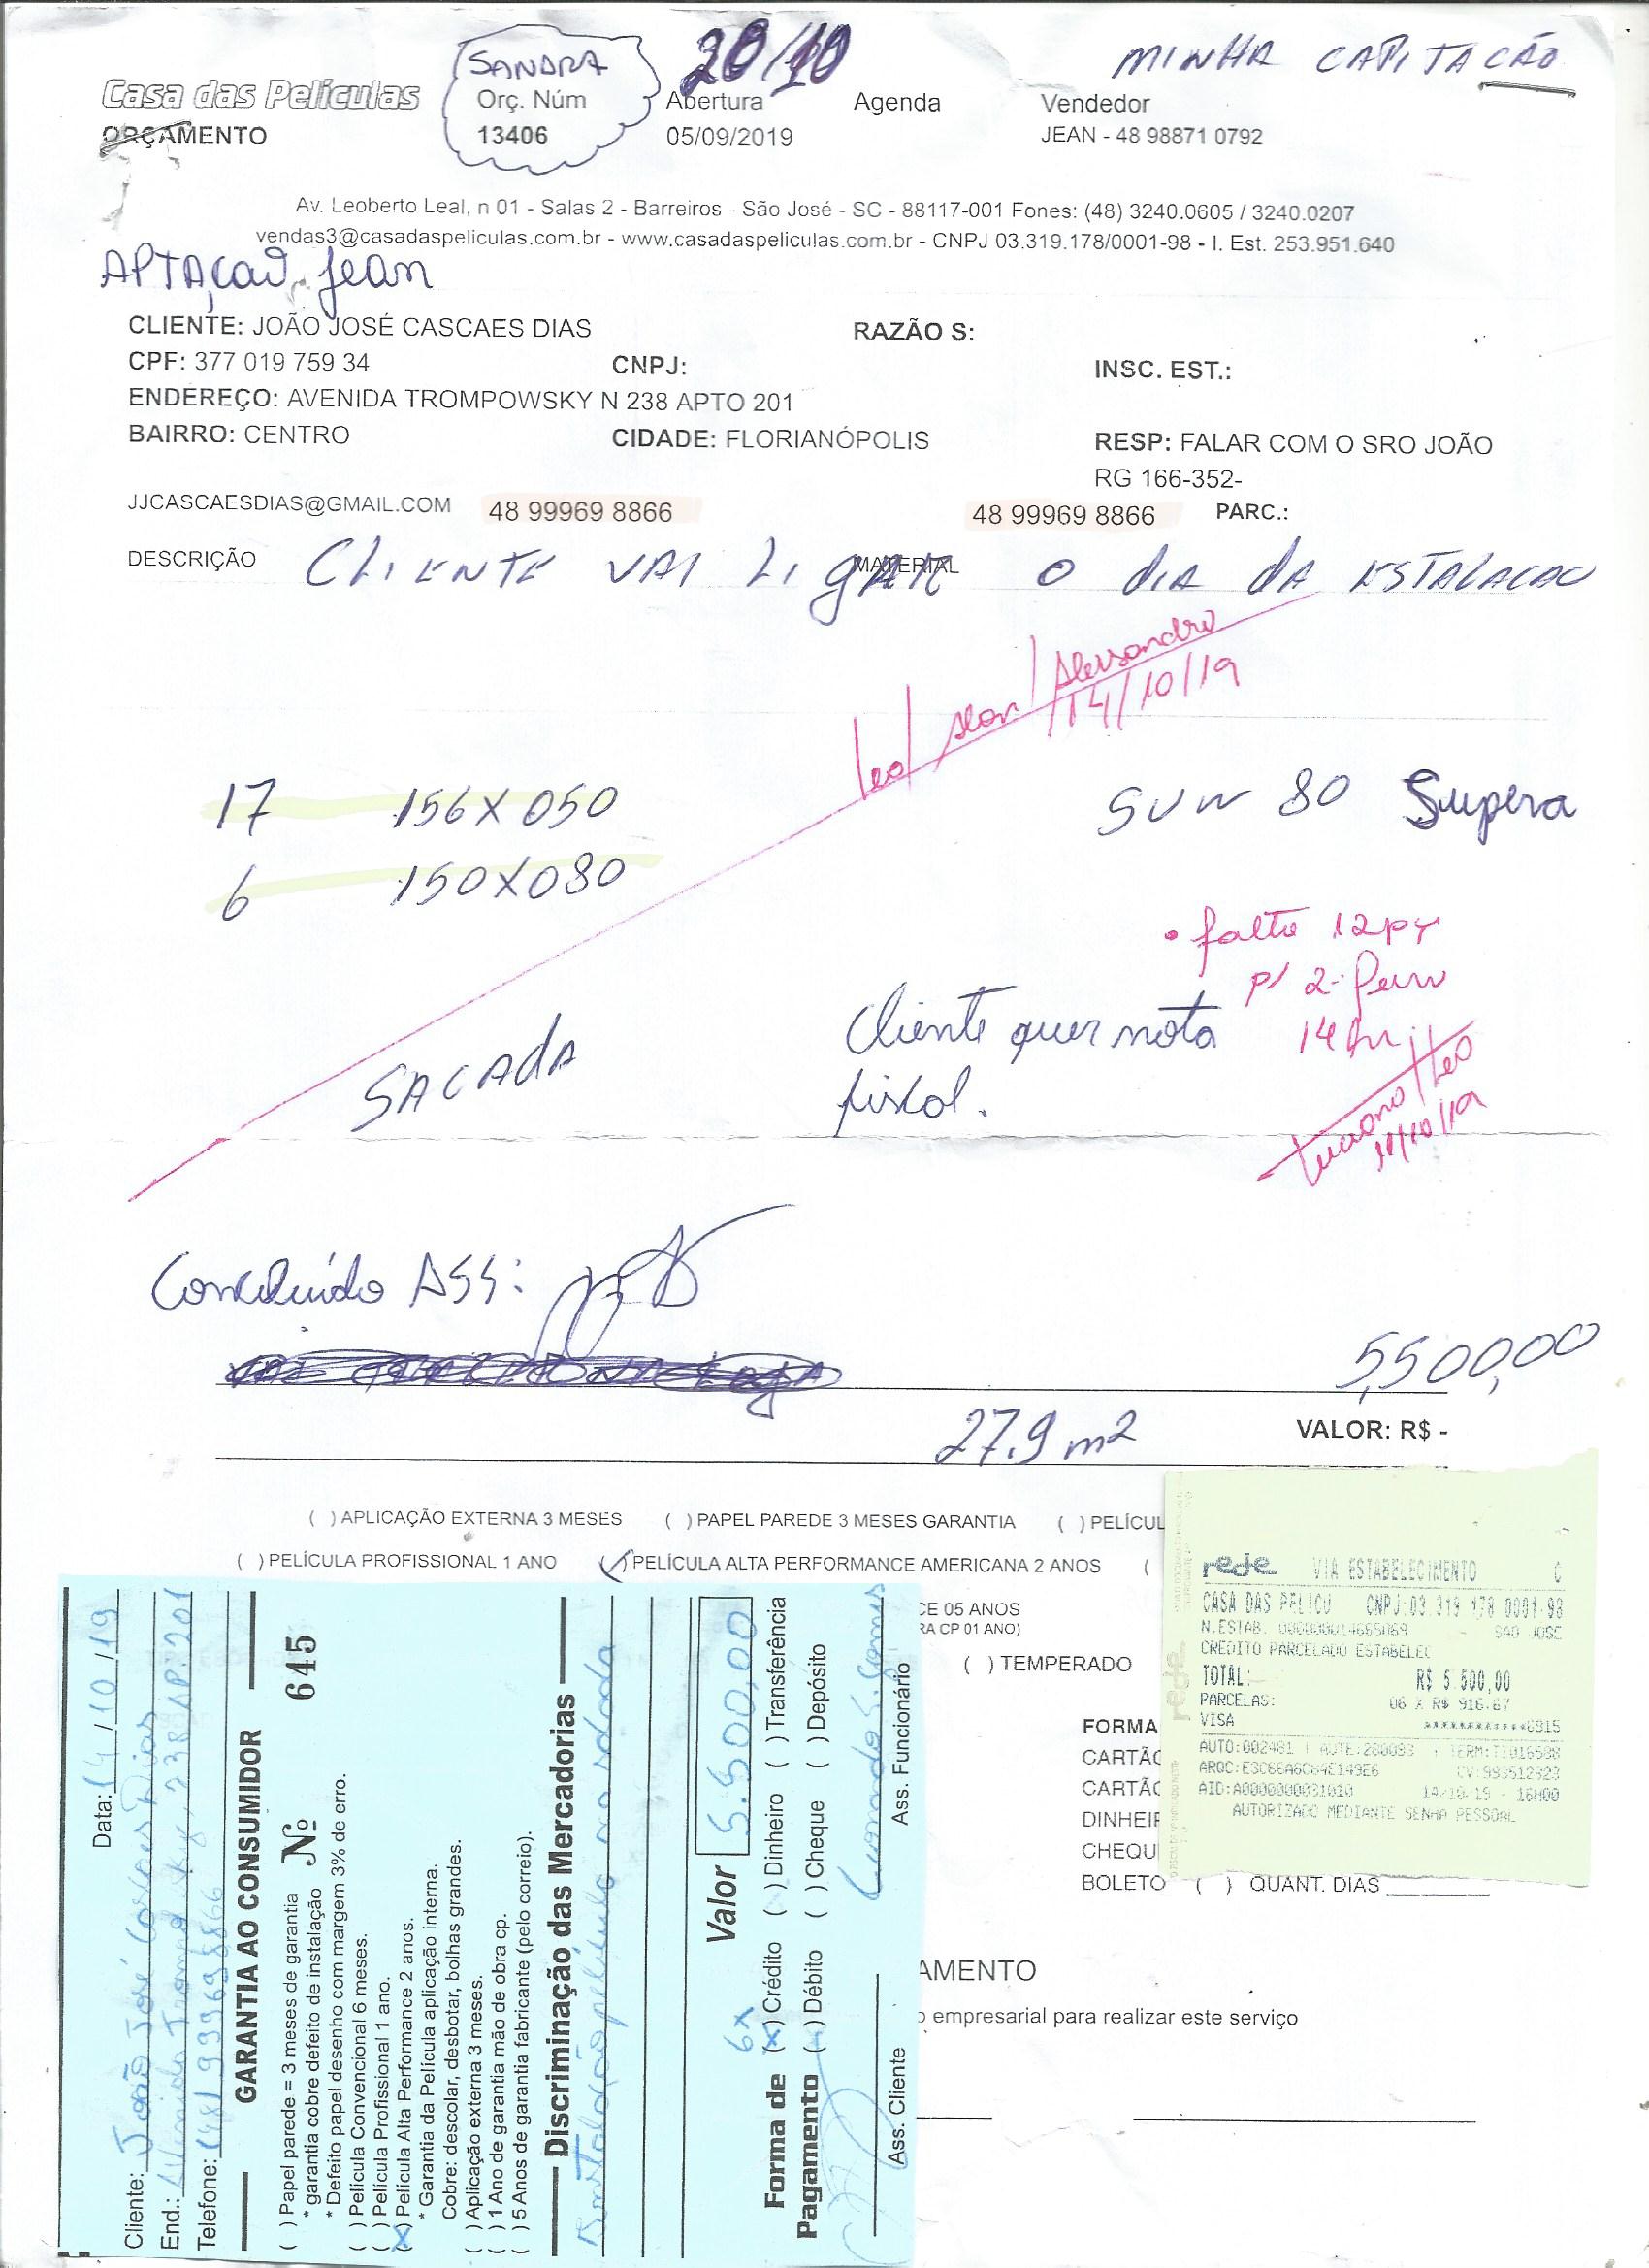 SANDRA
20/10
MINHA CAPITAÇÃO
Casa das Películas
Orç. Núm
Abertura
Agenda
Vendedor
ORÇAMENTO
13406
05/09/2019
JEAN - 48 98871 0792
Av. Leoberto Leal, n 01 - Salas 2 - Barreiros - São José - SC - 88117-001 Fones: (48) 3240.0605 / 3240.0207
vendas3@casadaspeliculas.com.br - www.casadaspeliculas.com.br - CNPJ 03.319.178/0001-98 - I. Est. 253.951.640
APTAÇão Jean
CLIENTE: JOÃO JOSÉ CASCAES DIAS
RAZÃO S:
CPF: 377 019 759 34
CNPJ:
INSC. EST.:
ENDEREÇO: AVENIDA TROMPOWSKY N 238 APTO 201
BAIRRO: CENTRO
CIDADE: FLORIANÓPOLIS
RESP: FALAR COM O SRO JOÃO
RG 166-352-
JJCASCAESDIAS@GMAIL.COM
48 99969 8866
48 99969 8866
PARC.:
DESCRIÇÃO
MATERIAL
CLIENTE VAI LIGAR O DIA DA ESTALACAO
Leo/ Alan/ Alessandro
14/10/19
17 156X050
SUN 80 Supera
6 150X080
• falta 12pç
p/ 2
14hr
Cliente quer nota
fiscal.
Luciano/Leo
11/10/19
SACADA
Concluído ASS:
5,500,00
27.9 m2
VALOR: R$ -
( ) APLICAÇÃO EXTERNA 3 MESES
( ) PAPEL PAREDE 3 MESES GARANTIA
( ) PELÍCUL
( ) PELÍCULA PROFISSIONAL 1 ANO
(✓) PELÍCULA ALTA PERFORMANCE AMERICANA 2 ANOS
(
CE 05 ANOS
RA CP 01 ANO)
( ) TEMPERADO
FORMA
CARTÃO
CARTÃO
DINHEIR
CHEQU
BOLETO ( ) QUANT. DIAS
AMENTO
o empresarial para realizar este serviço
rede VIA ESTABELECIMENTO C
CASA DAS PELICU CNPJ:03.319.178 0001-98
N.ESTAB. 000000014665069 SAO JOSE
CREDITO PARCELADO ESTABELEC
TOTAL: R$ 5.500,00
PARCELAS: 06 X R$ 916.67
VISA ************0315
AUTO:002481 AUTE:280093 TERM:TT016598
AROC:E3C66A6C84E149E6 CV:993512323
AID:A0000000031010 14/10/19 - 16H00
AUTORIZADO MEDIANTE SENHA PESSOAL
Data: 14/10/19
Cliente: João José Cascaes Dias
End.: Avenida Trompowsky, 238 AP. 201
Telefone: (48) 99969 8866
GARANTIA AO CONSUMIDOR
( ) Papel parede = 3 meses de garantia
Nº 645
* garantia cobre defeito de instalação
* Defeito papel desenho com margem 3% de erro.
( ) Película Convencional 6 meses.
( ) Película Profissional 1 ano.
(X) Película Alta Performance 2 anos.
* Garantia da Película aplicação interna.
Cobre: descolar, desbotar, bolhas grandes.
( ) Aplicação externa 3 meses.
( ) 1 Ano de garantia mão de obra cp.
( ) 5 Anos de garantia fabricante (pelo correio).
Discriminação das Mercadorias
Instalação película na sacada
Valor 5.500,00
6x
Forma de Pagamento
(x) Crédito ( ) Dinheiro ( ) Transferência
( ) Débito ( ) Cheque ( ) Depósito
Ass. Cliente
Ass. Funcionário